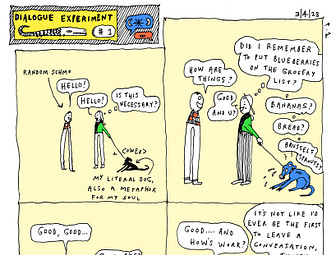 DIALOGUE EXPERIMENT
# 1
2|4|23
RANDOM SCHMO
HELLO!
HELLO!
IS THIS
NECESSARY?
MY LITERAL DOG,
ALSO A METAPHOR
FOR MY SOUL
HOW ARE
THINGS?
GOOD
AND U?
DID I REMEMBER
TO PUT BLUEBERRIES
ON THE GROCERY
LIST?
BANANAS?
BREAD?
BRUSSELS
SPROUTS?
GOOD, GOOD...
GOOD.... AND
HOW'S WORK?
IT'S NOT LIKE I'D
EVER BE THE FIRST
TO LEAVE A
CONVERSATION,